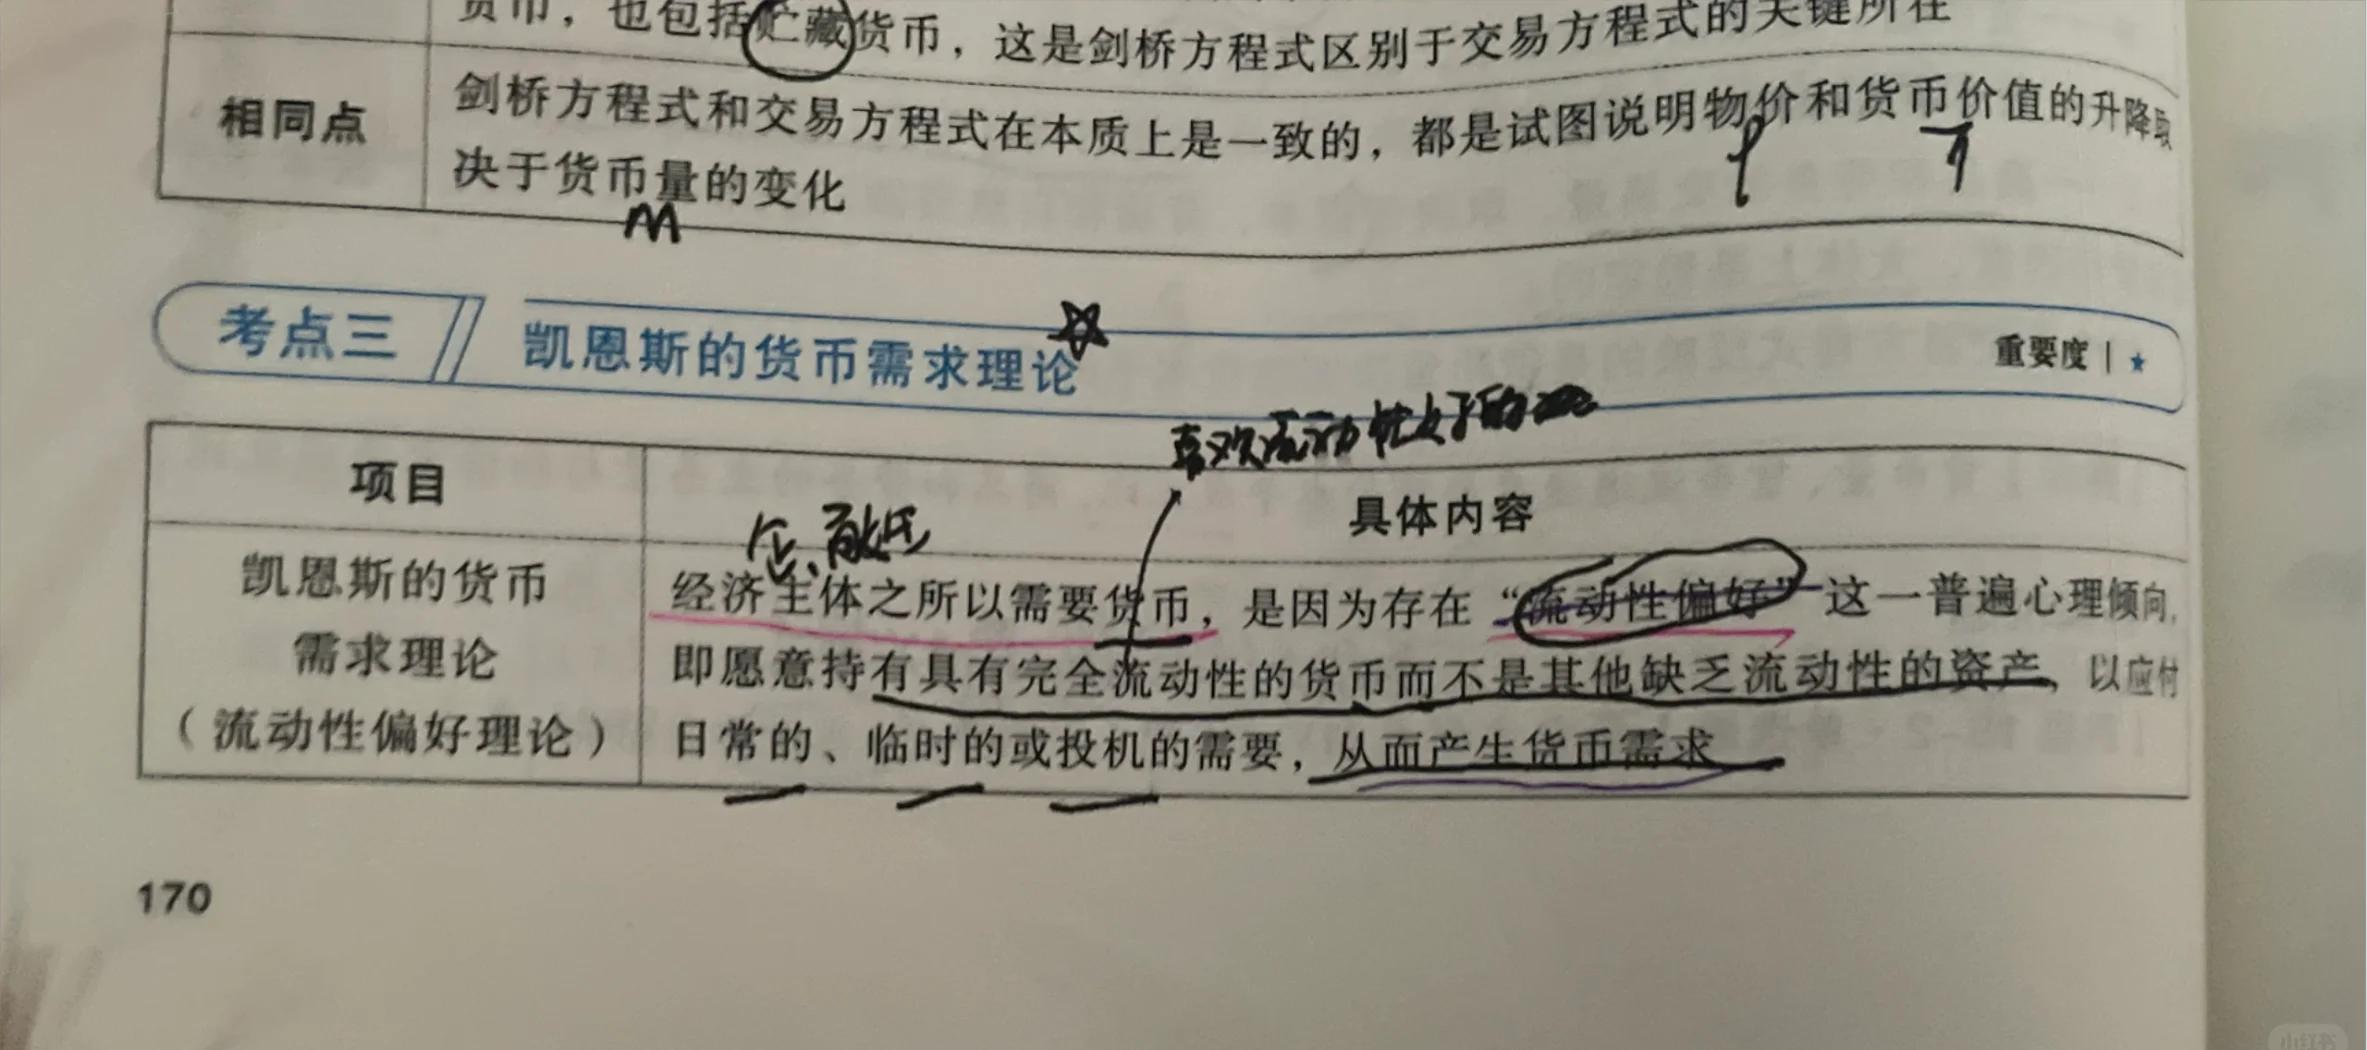 货币，也包括贮藏货币，这是剑桥方程式区别于交易方程式的关键所在
相同点
剑桥方程式和交易方程式在本质上是一致的，都是试图说明物价和货币价值的升降取
决于货币量的变化
P
M
考点三
凯恩斯的货币需求理论
重要度 | ★
喜欢流动性好的
项目
具体内容
企、
凯恩斯的货币
需求理论
（流动性偏好理论）
经济主体之所以需要货币，是因为存在“流动性偏好”这一普遍心理倾向，
即愿意持有具有完全流动性的货币而不是其他缺乏流动性的资产，以应付
日常的、临时的或投机的需要，从而产生货币需求
170
小红书